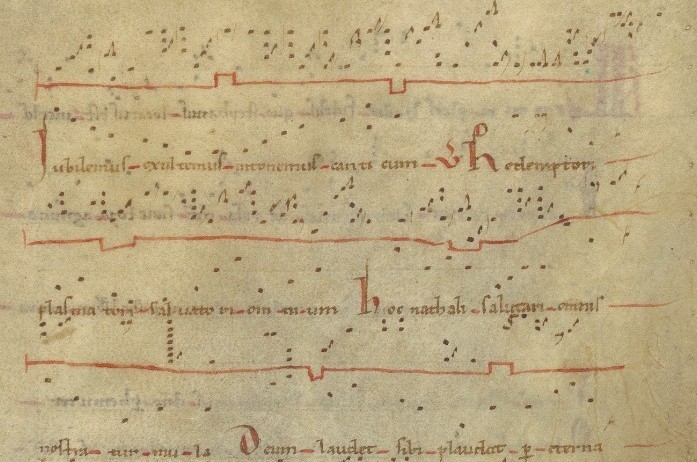 Jubilemus exultemus intonemus canticum Redemptori
plasmatori salvatori omnium hoc nathali salutari omnis
nostra turmula Deum laudet sibi plaudat p̱ eterna